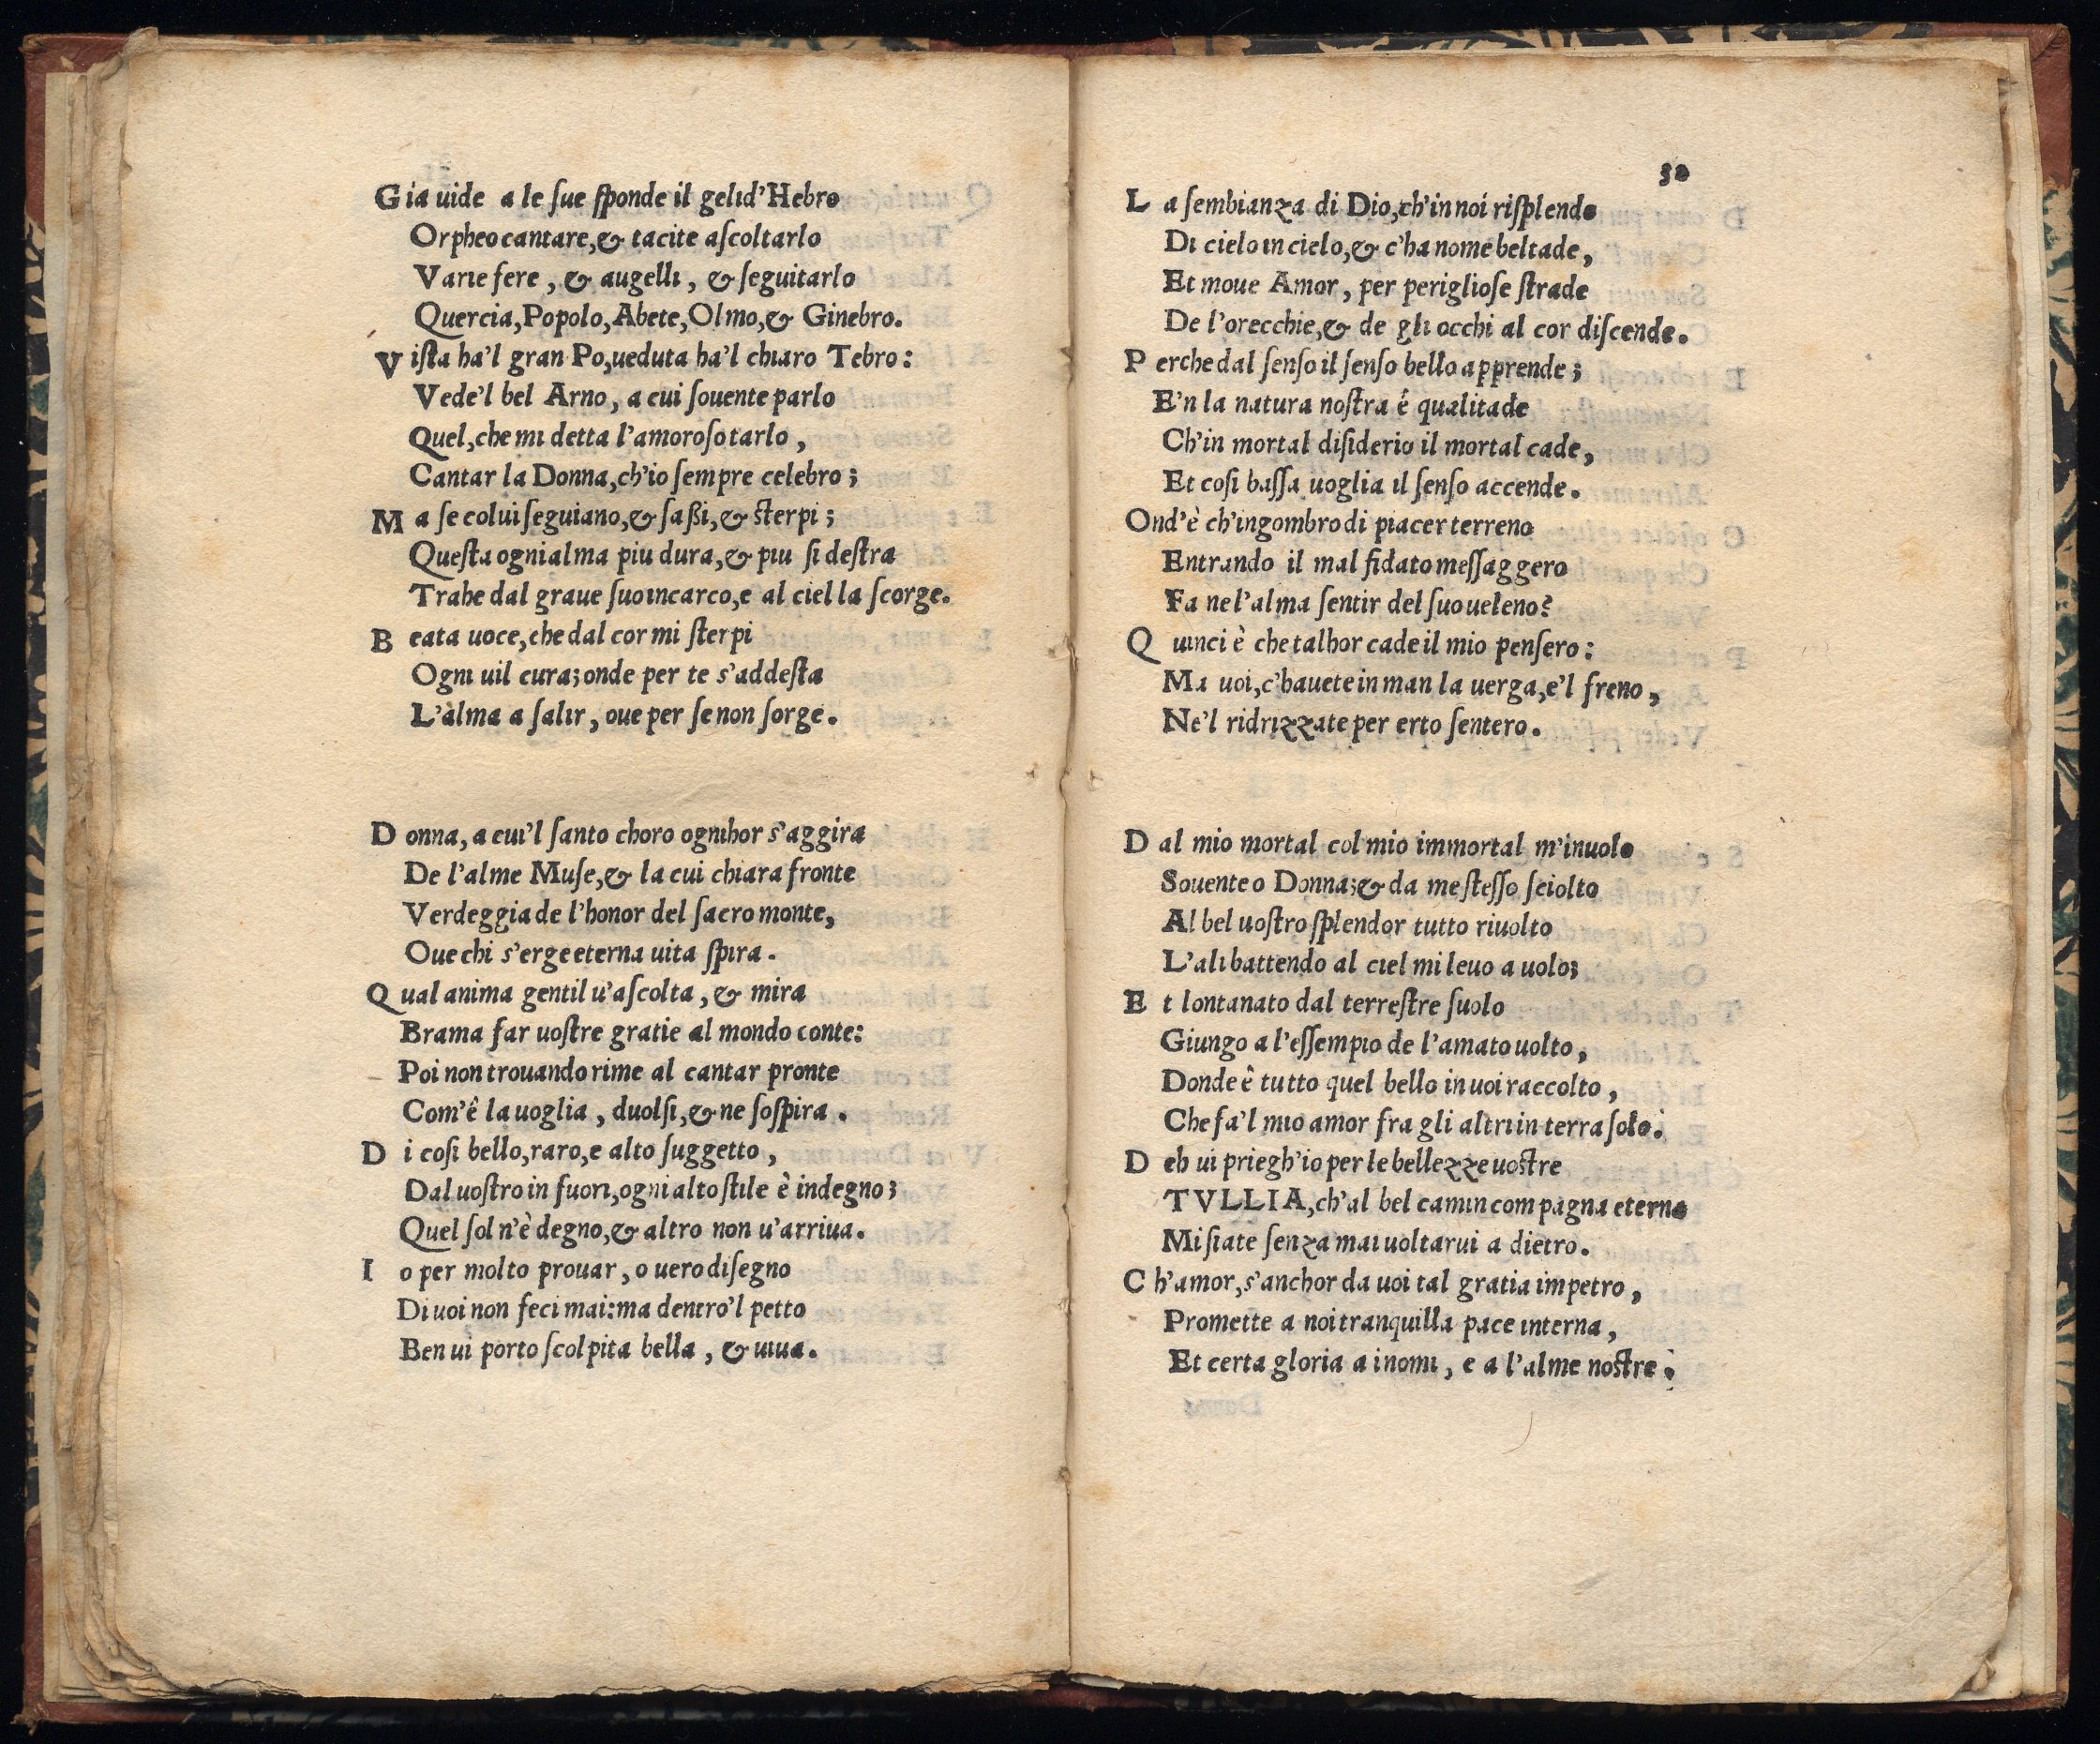 Gia uide a le ſue ſponde il gelid'Hebro
Orpheo cantare, & tacite aſcoltarlo
Varie fere, & augelli, & ſeguitarlo
Quercia, Popolo, Abete, Olmo, & Ginebro.
Viſta ha'l gran Po, ueduta ha'l chiaro Tebro:
Vede'l bel Arno, a cui ſouente parlo
Quel, che mi detta l'amoroſo tarlo,
Cantar la Donna, ch'io ſempre celebro;
Ma ſe colui ſeguiano, & ſaßi, & ſterpi;
Queſta ogni alma piu dura, & piu ſi deſtra
Trahe dal graue ſuo incarco, e al ciel la ſcorge.
Beata uoce, che dal cor mi ſterpi
Ogni uil cura; onde per te s'addeſta
L'àlma a ſalir, oue per ſe non ſorge.
Donna, a cui'l ſanto choro ognihor s'aggira
De l'alme Muſe, & la cui chiara fronte
Verdeggia de l'honor del ſacro monte,
Oue chi s'erge eterna uita ſpira.
Qual anima gentil u'aſcolta, & mira
Brama far uoſtre gratie al mondo conte:
Poi non trouando rime al cantar pronte
Com'ê la uoglia, duolſi, & ne ſoſpira.
Di coſi bello, raro, e alto ſuggetto,
Dal uoſtro in fuori, ogni alto ſtile è indegno;
Quel ſol n'è degno, & altro non u'arriua.
Io per molto prouar, o uero diſegno
Di uoi non feci mai: ma dentro'l petto
Ben ui porto ſcolpita bella, & uiua.
30
La ſembianza di Dio, ch'in noi riſplende
Di cielo in cielo, & c'ha nome beltade,
Et moue Amor, per periglioſe ſtrade
De l'orecchie, & de gli occhi al cor diſcende.
Perche dal ſenſo il ſenſo bello apprende;
E'n la natura noſtra ê qualitade
Ch'in mortal diſiderio il mortal cade,
Et coſi baſſa uoglia il ſenſo accende.
Ond'è ch'ingombro di piacer terreno
Entrando il mal fidato meſſaggero
Fa ne l'alma ſentir del ſuo ueleno?
Quinci è che talhor cade il mio penſero:
Ma uoi, c'hauete in man la uerga, e'l freno,
Ne'l ridrizzate per erto ſentero.
Dal mio mortal col mio immortal m'inuolo
Souente o Donna; & da me ſteſſo ſciolto
Al bel uoſtro ſplendor tutto riuolto
L'ali battendo al ciel mi leuo a uolo;
Et lontanato dal terreſtre ſuolo
Giungo a l'eſſempio de l'amato uolto,
Donde ê tutto quel bello in uoi raccolto,
Che fa'l mio amor fra gli altri in terra ſolo.
Deh ui priegh'io per le bellezze uoſtre
TVLLIA, ch'al bel camin compagna eterna
Mi ſiate ſenza mai uoltarui a dietro.
Ch'amor, s'anchor da uoi tal gratia impetro,
Promette a noi tranquilla pace interna,
Et certa gloria a i nomi, e a l'alme noſtre.